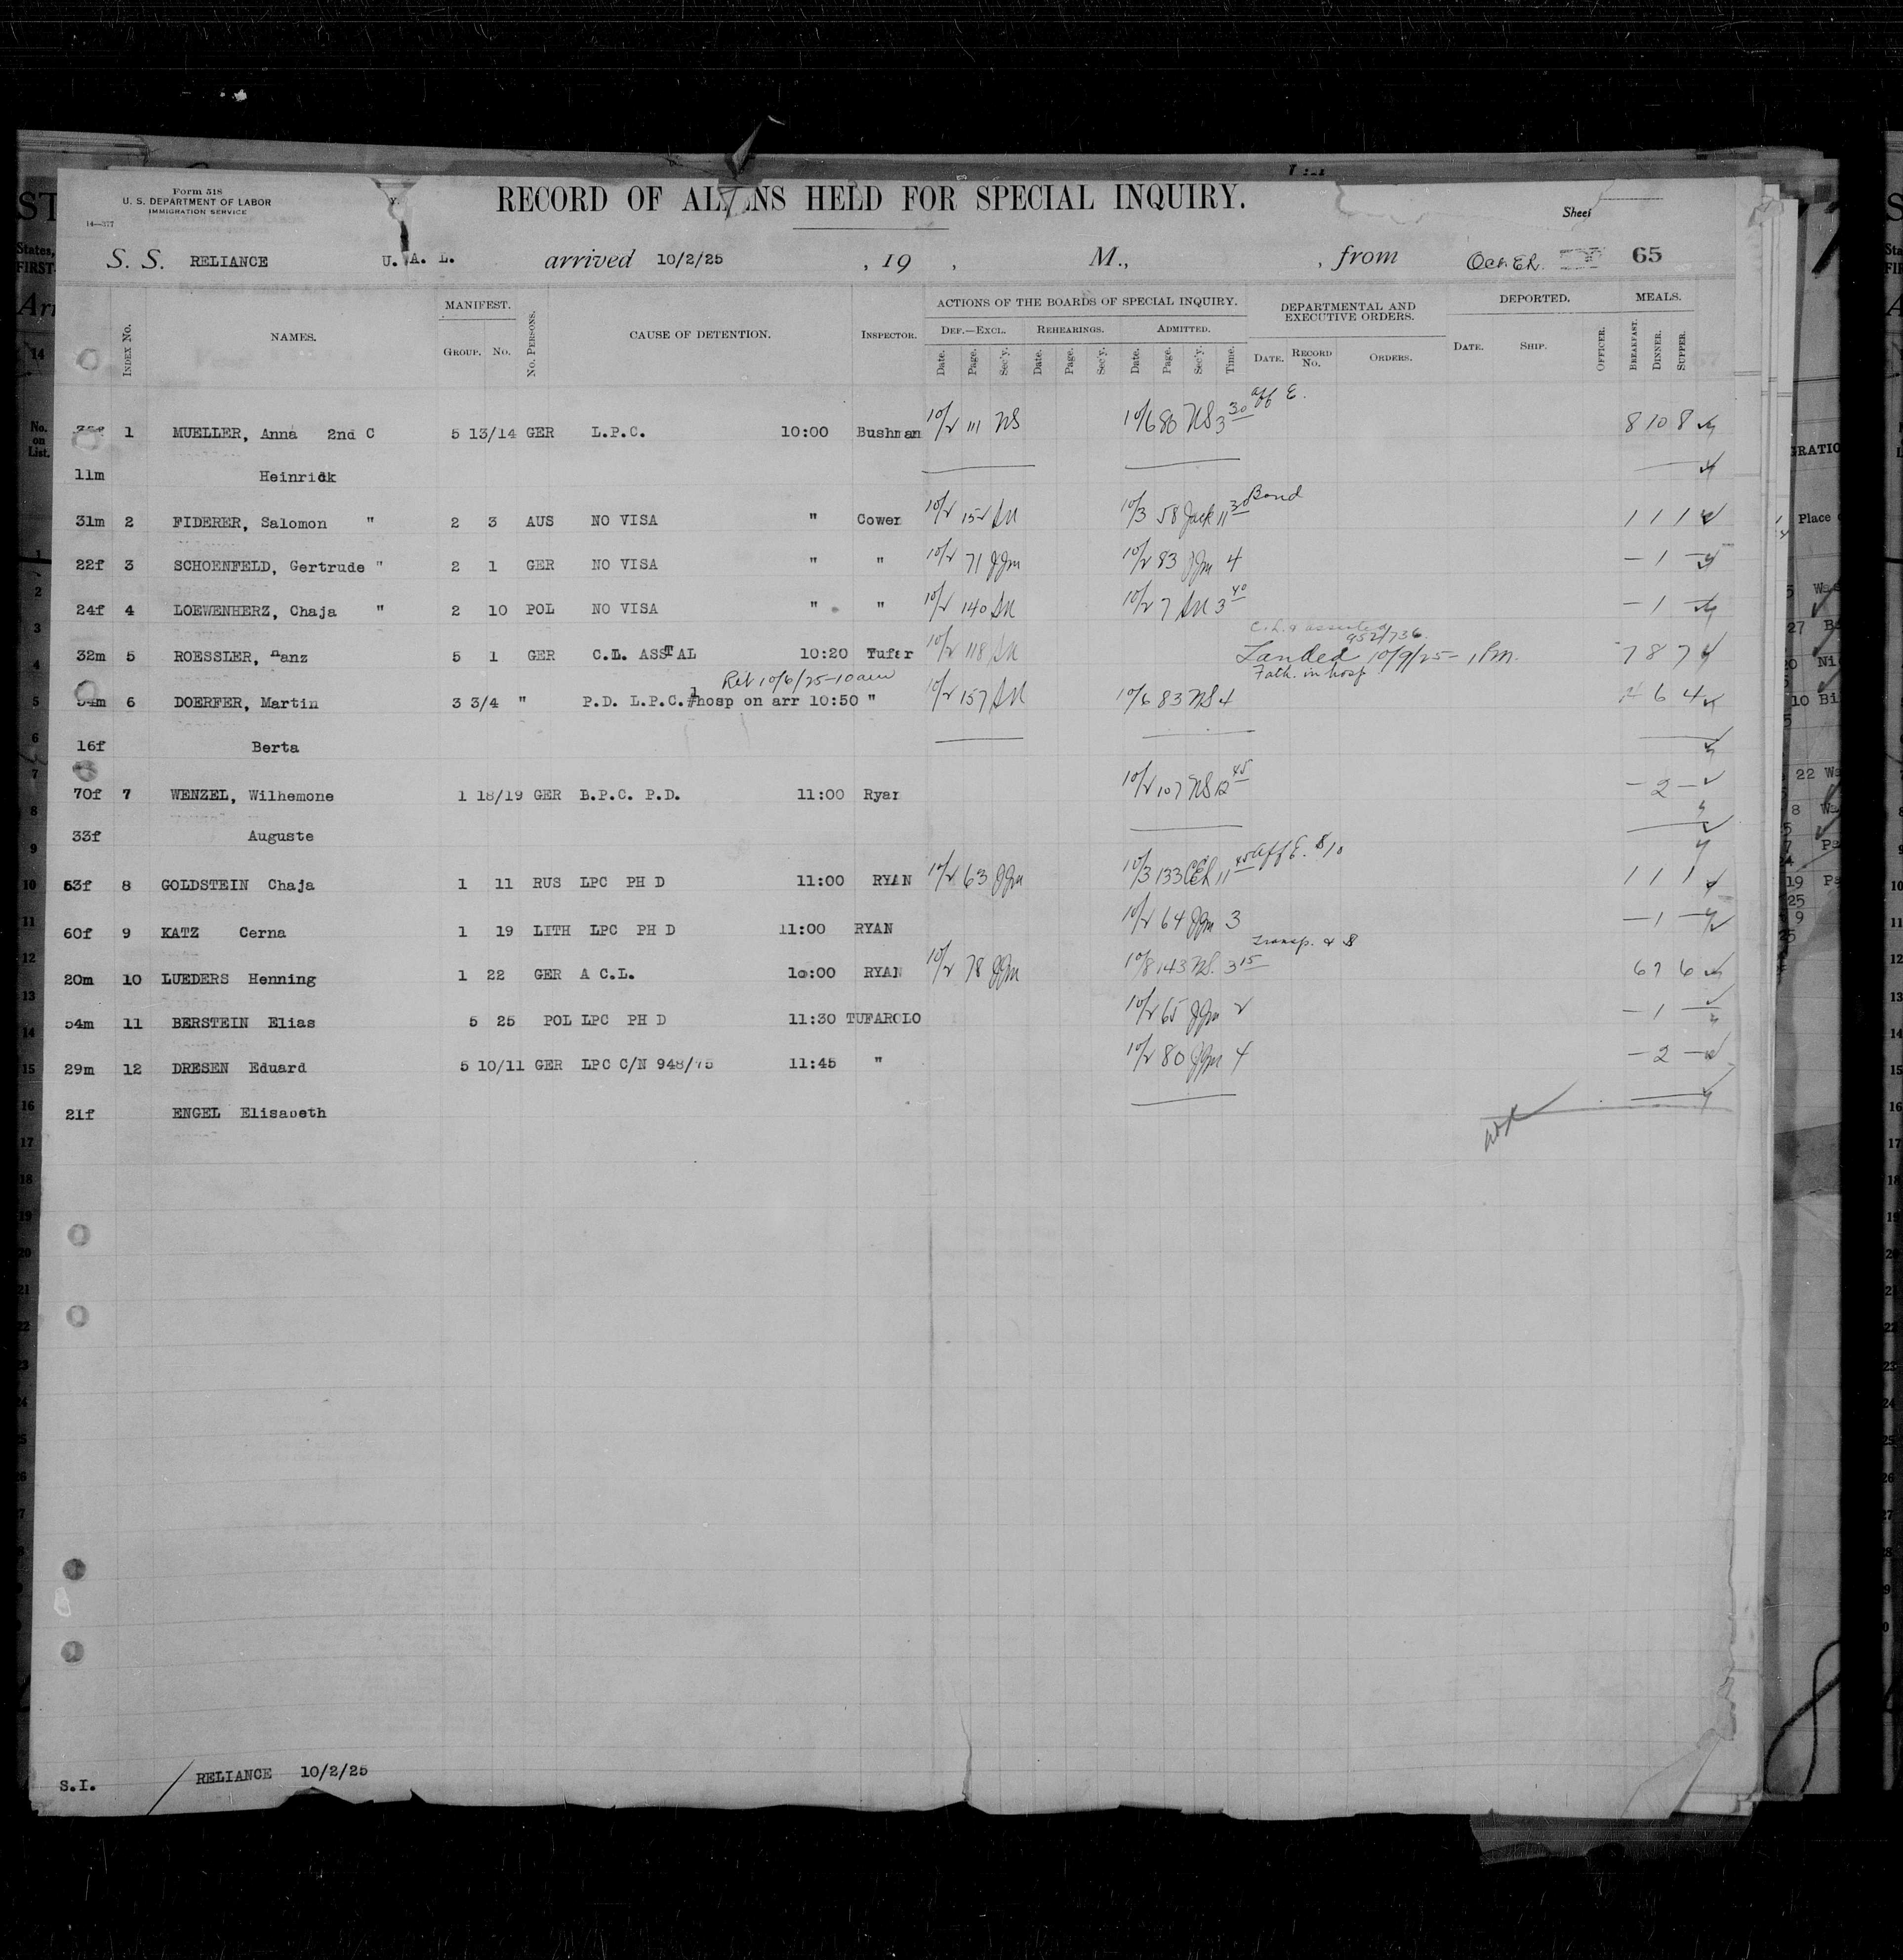 Form 518
U. S. DEPARTMENT OF LABOR
IMMIGRATION SERVICE
14—377
RECORD OF ALIENS HELD FOR SPECIAL INQUIRY.
Sheet
S. S. RELIANCE U. A. L. arrived 10/2/25 , 19 , M., , from 65
INDEX No. NAMES. MANIFEST. GROUP. No. No. PERSONS. CAUSE OF DETENTION. INSPECTOR. ACTIONS OF THE BOARDS OF SPECIAL INQUIRY. DEF.—EXCL. REHEARINGS. ADMITTED. DEPARTMENTAL AND EXECUTIVE ORDERS. DEPORTED. MEALS.
Date. Page. Sec'y. Date. Page. Sec'y. Date. Page. Sec'y. Time. DATE. RECORD No. ORDERS. DATE. SHIP. OFFICER. BREAKFAST. DINNER. SUPPER.
1 MUELLER, Anna 2nd C 5 13/14 GER L.P.C. 10:00 Bushman 10/2 111 NS 10/6 80 NS 3 30 aff E. 8 10 8
11m Heinrick
31m 2 FIDERER, Salomon " 2 3 AUS NO VISA " Cower 10/2 152 10/3 58 Jack 11 30 Bond 1 1 1
22f 3 SCHOENFELD, Gertrude " 2 1 GER NO VISA " " 10/2 71 JJm 10/2 83 JJm 4 — 1 —
24f 4 LOEWENHERZ, Chaja " 2 10 POL NO VISA " " 10/2 140 10/2 7 3 40 — 1 —
32m 5 ROESSLER, Hanz 5 1 GER C.L. ASST AL 10:20 Tufar 10/2 118 952/736. Landed 10/9/25 - 1 Pm. 7 8 7
Ret 10/6/25 - 10 am Fath. in hosp
6 DOERFER, Martin 3 3/4 " P.D. L.P.C. 1 hosp on arr 10:50 " 10/2 157 10/6 83 NS 4 6 4
16f Berta
70f 7 WENZEL, Wilhemone 1 18/19 GER B.P.C. P.D. 11:00 Ryan 10/2 107 NS 12 45 — 2 —
33f Auguste
53f 8 GOLDSTEIN Chaja 1 11 RUS LPC PH D 11:00 RYAN 10/2 63 JJm 10/3 133 11 45 aff E. 1 1 1
60f 9 KATZ Cerna 1 19 LITH LPC PH D 11:00 RYAN 10/2 64 JJm 3 — 1 —
20m 10 LUEDERS Henning 1 22 GER A C.L. 10:00 RYAN 10/2 78 JJm 10/8 143 NS. 3 15 Transp. 6 7 6
54m 11 BERSTEIN Elias 5 25 POL LPC PH D 11:30 TUFAROLO 10/2 65 JJm 2 — 1 —
29m 12 DRESEN Eduard 5 10/11 GER LPC C/N 948/75 11:45 " 10/2 80 JJm 4 — 2 —
21f ENGEL Elisabeth
S.I. RELIANCE 10/2/25